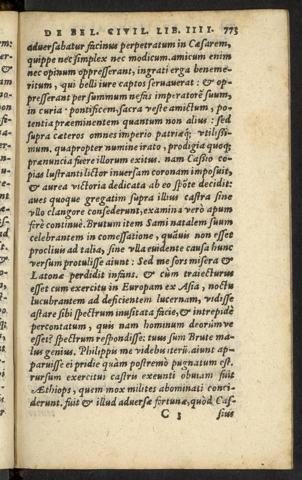 DE BEL. CIVIL. LIB. IIII. 773
aduersabatur facinus perpetratum in Cæsarem,
quippe nec simplex nec modicum. amicum enim
nec opinum oppresserant, ingrati erga beneme-
ritum, qui belli iure captos seruauerat: & op-
presserant per summum nefas imperatorē suum,
in curia: pontificem, sacra veste amictum, po-
tentia præeminentem quantum non alius: sed
supra cæteros omnes imperio patriæq; vtilissi-
mum. quapropter numine irato, prodigia quoq;
prænuncia fuere illorum exitus. nam Cassio co-
pias lustranti lictor inuersam coronam imposuit,
& aurea victoria dedicata ab eo spōte decidit:
aues quoque gregatim supra illius castra sine
vllo clangore consederunt, examina verò apum
ferè continuè. Brutum item Sami natalem suum
celebrantem in comessatione, quāuis non esset
procliuis ad talia, sine vlla euidente causa hunc
versum protulisse aiunt: Sed me sors misera &
Latonæ perdidit infans. & cùm traiecturus
esset cum exercitu in Europam ex Asia, noctu
lucubrantem ad deficientem lucernam, vidisse
astare sibi spectrum inusitata facie, & intrepidè
percontatum, quis nam hominum deorúmve
esset? spectrum respondisse: tuus sum Brute ma-
lus genius. Philippis me videbis iterū. aiunt ap-
paruisse ei pridie quàm postremò pugnatum est.
rursum exercitui castris exeunti obuiam fuit
Æthiops, quem mox milites abominati conci-
derunt. fuit & illud aduersæ fortunæ, quòd Cas-
C 3 sius